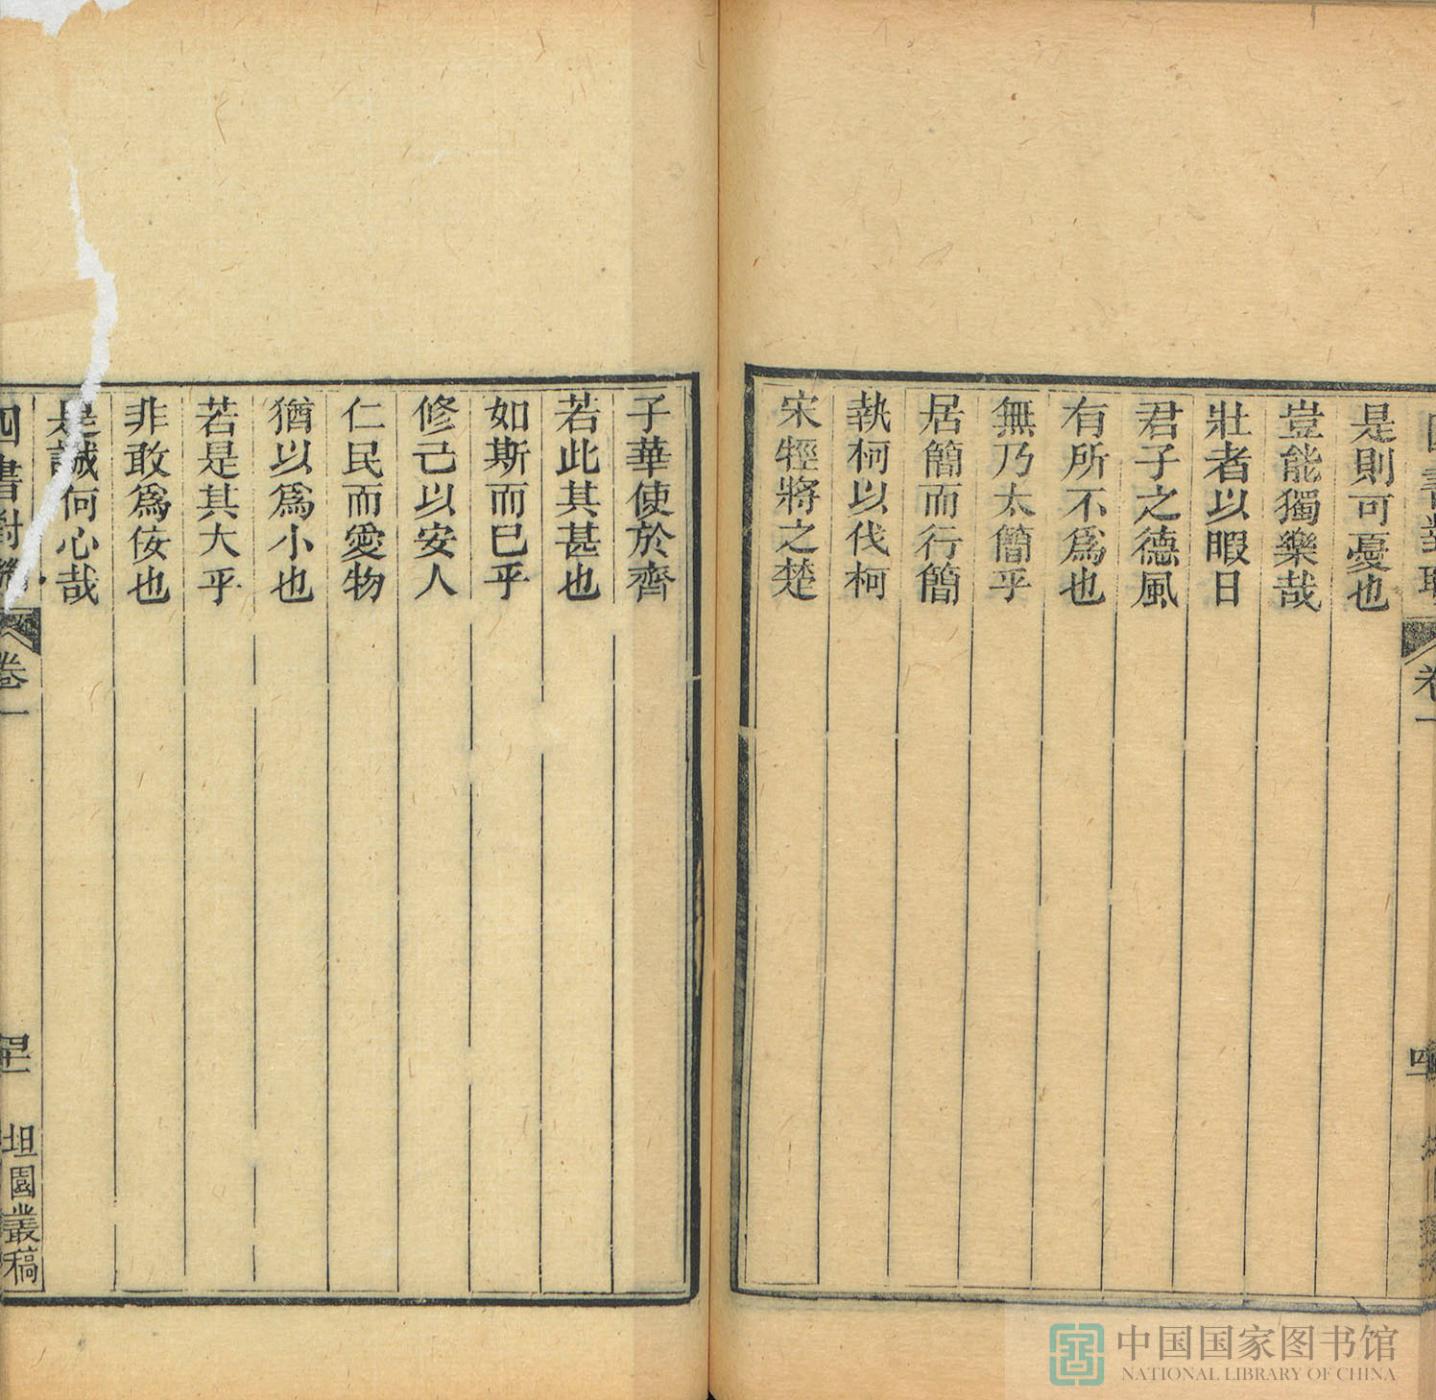 是則可憂也
豈能獨樂哉
壯者以暇日
君子之德風
有所不爲也
無乃太簡乎
居簡而行簡
執柯以伐柯
宋牼將之楚
子華使於齊
若此其甚也
如斯而已乎
修己以安人
仁民而愛物
猶以爲小也
若是其大乎
非敢爲佞也
是誠何心哉
四書對
卷一
坦園叢稿
中国国家图书馆
NATIONAL LIBRARY OF CHINA